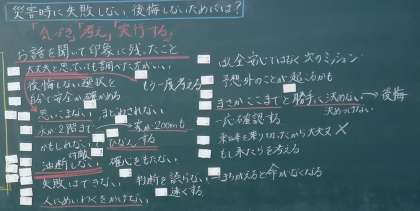 災害時に失敗しない 後悔しないためには？
「気づき」「考え」「実行する」
お話を聞いて印象に残ったこと
大丈夫と思っていても調べた方がいい
後悔しない選択を もう一度考える
自分で安全か確かめる
思いこまない、まどわされない
水が2階まで 家が200mも
かもしれない ひなんする
油断しない、確信をもたない
失敗はできない 判断を誤らない まちがえると命がなくなる
速くする
人にめいわくをかけない
は安心ではなく次のミッション
予想外のことが起こるかも
まさかここまでと勝手に決めない → 後悔
決めつけない
一応確認する
を乗り切ったから大丈夫 ×
もし来たらを考える